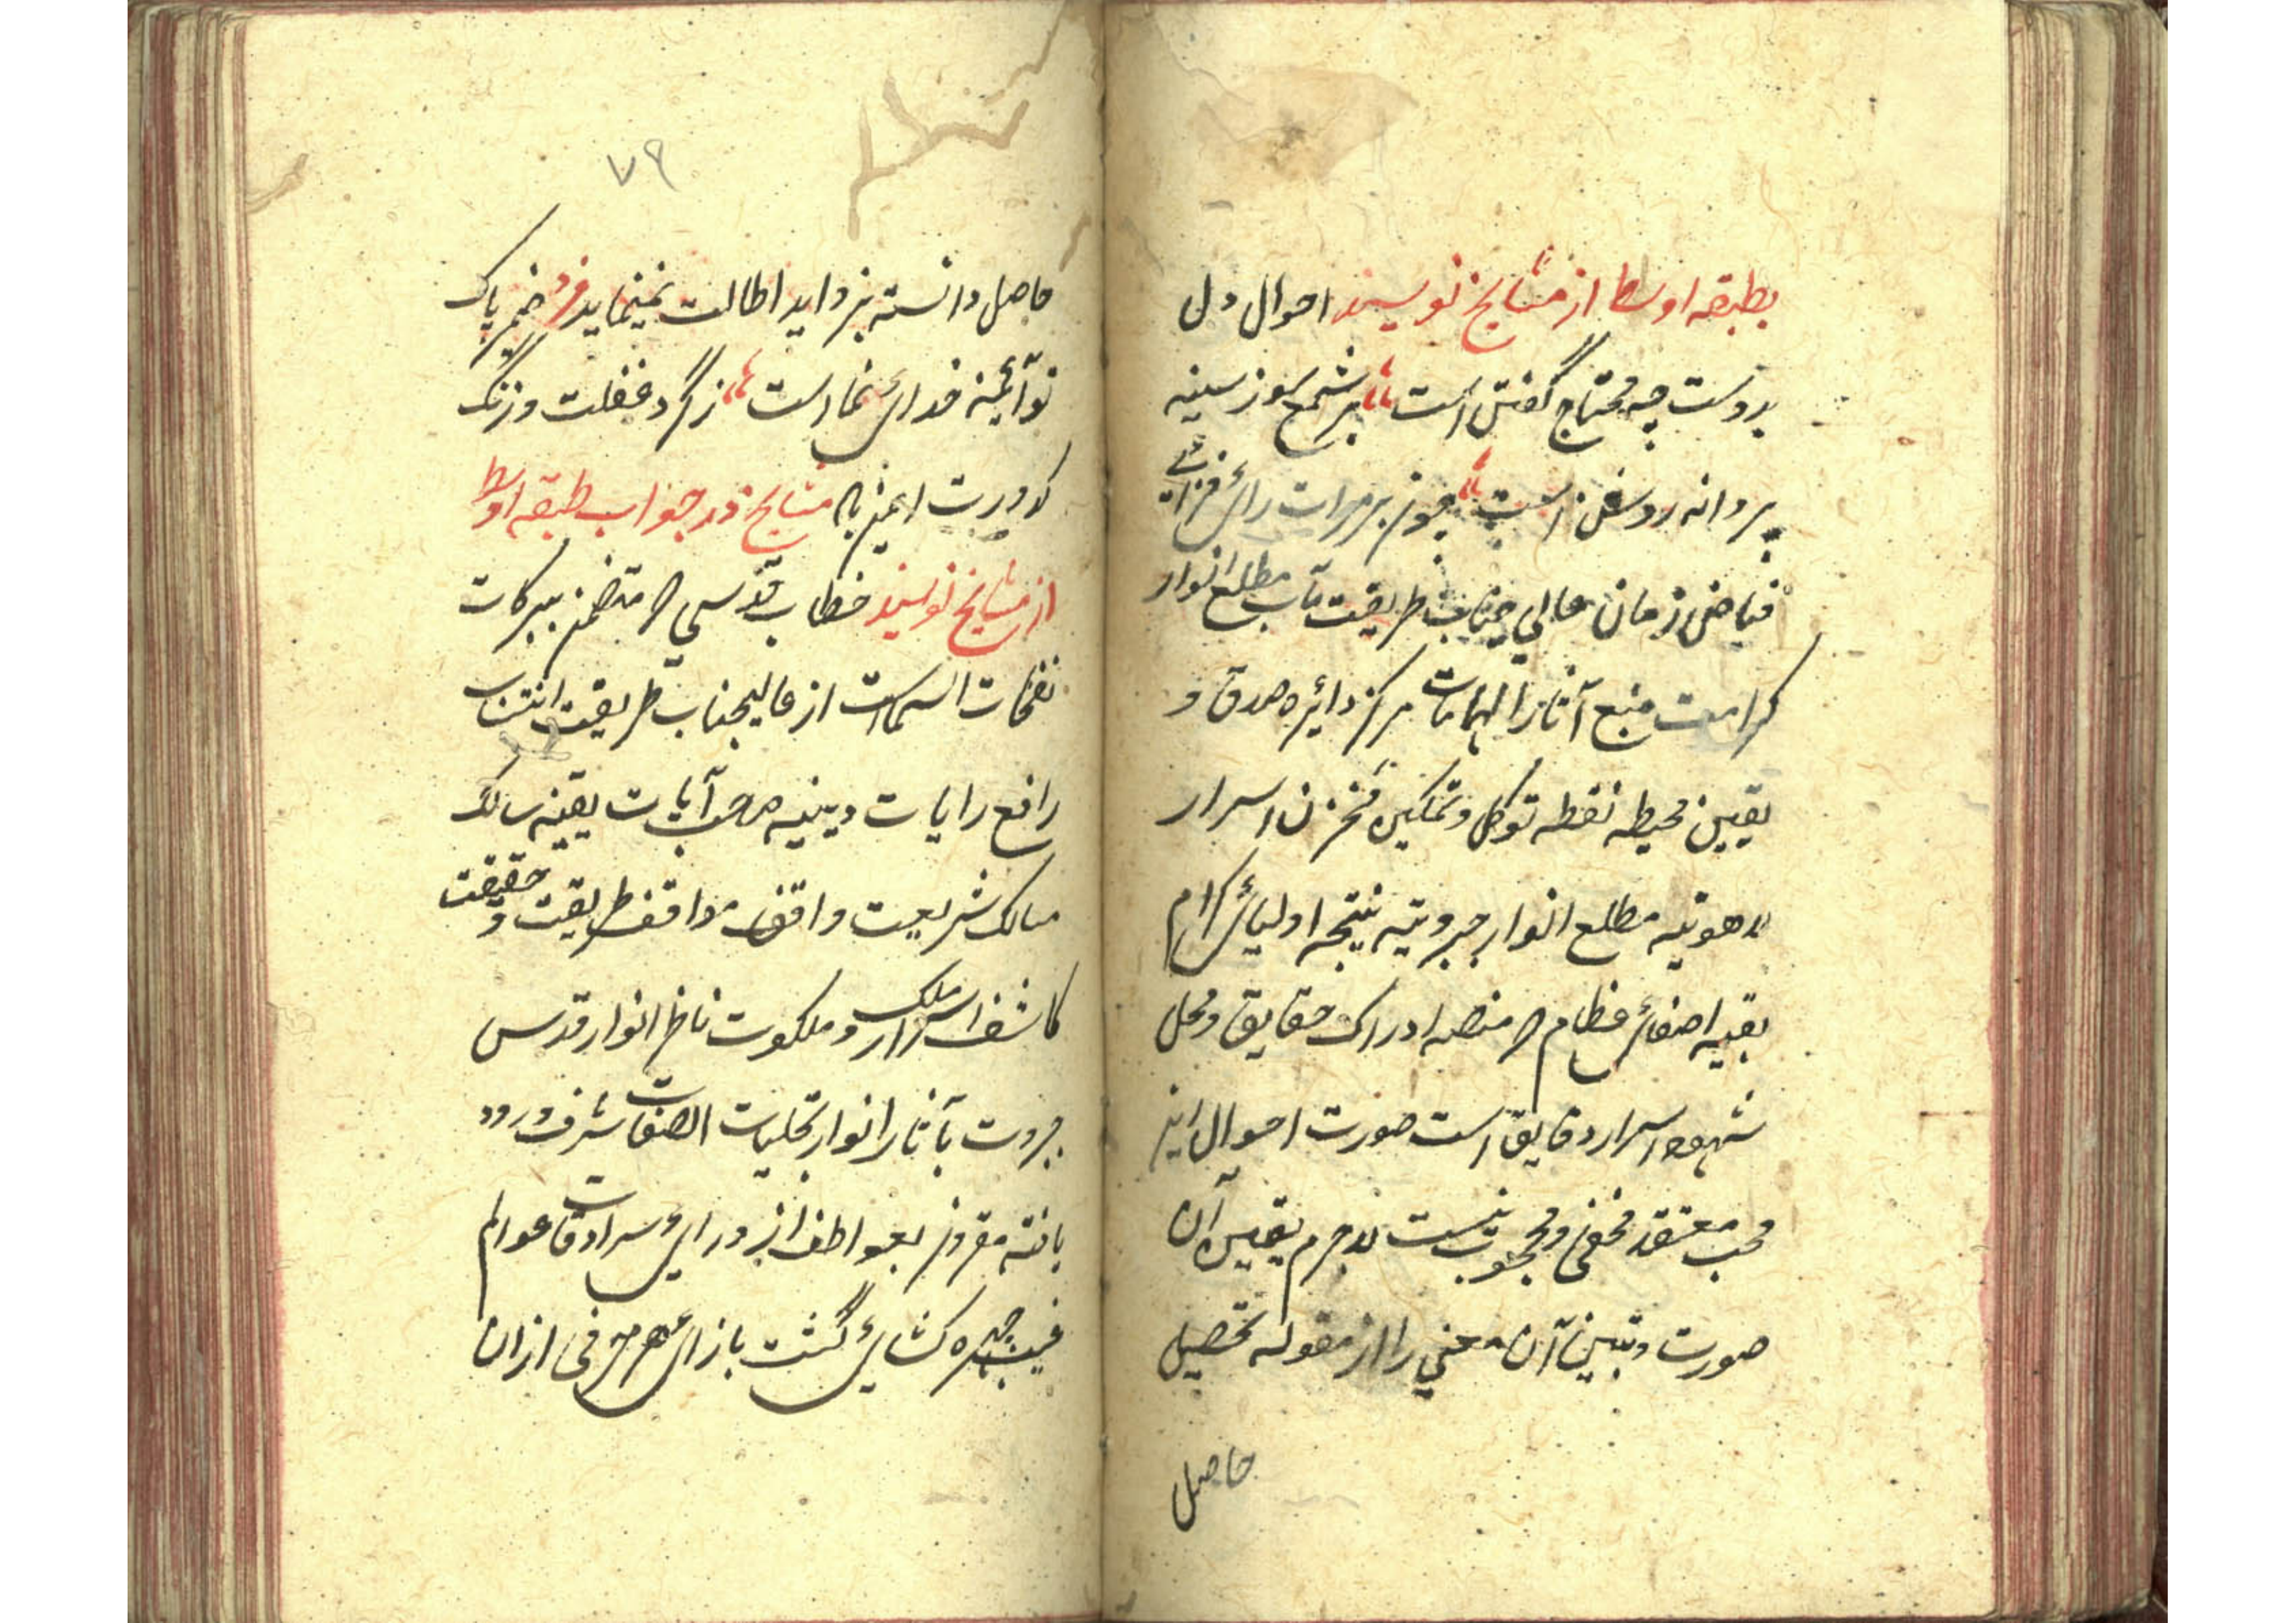 بطبقه اوسط از مشایخ نویسند احوال دل
بدوست چه محتاج گفتن است بر شمع سوز سینه
پروانه روشن است چون بر مرات رای
فیاض زمان عالی جناب طریقت مآب مطلع انوار
کرامت منبع آثار الهامات مرکز دایره صدق و
یقین محیطه نقطه توکل و تمکین مخزن اسرار
لاهوتیه مطلع انوار جبروتیه نتیجه اولیای کرام
بقیه اصفای عظام که منصه ادراک حقایق و محل
شهود اسرار دقایق است صورت احوال این
محب معتقد مخفی و محجوب نیست لاجرم یقین آن
صورت و تبین آن معنی را از مقوله تحصیل
حاصل
۷۹
حاصل دانسته بزواید اطالت نمینماید فرد ضمیر پاک
تو آئینه خدای نما است ز گرد غفلت و زنگ
کدورت مشایخ در جواب طبقه اوسط
از مشایخ نویسند خطاب قدسی که متضمن ببرکات
نفحات است از عالیجناب طریقت انتساب
رافع رایات دینیه صاحب آیات یقینیه سالک
مسالک شریعت واقف مواقف طریقت و حقیقت
کاشف اسرار ملک و ملکوت ناظر انوار قدس
جبروت بآثار انوار تجلیات الصفات شرف ورود
یافته مقرون بعواطف از ورای سرادقات عوالم
غیب چهره کشای گشت بازای هر حرفی ازان